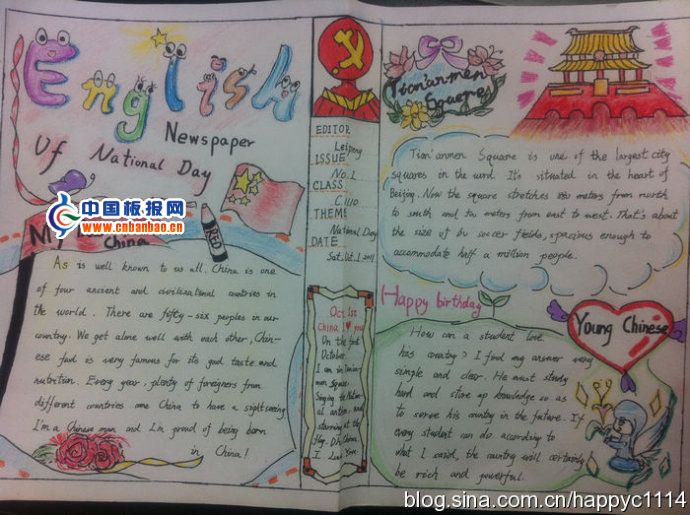 English
Newspaper
Of National Day
中国板报网
www.cnbanbao.cn
M
China
RED
As is well known to us all, China is one
of four ancient and civilizational countries in
the world. There are fifty-six peoples in our
country. We get alone well with each other, Chin-
ese food is very famous for its good taste and
nutrition. Every year, plenty of foreigners from
different countries come China to have a sightseeing
I'm a Chinese man and I'm proud of being born
in China!
EDITOR
Leipeng
ISSUE
No.1
CLASS
C1110
THEME
National Day
DATE
Sat. Oct. 1, 2011
Oct 1st
China I you
On the first
October
I am in Tianan-
men Square
Singing the Natio-
nal anthem, and
starring at the
flag. Oh, China
I Love You
Tian'anmen
Squeres
Tian'anmen Square is one of the largest city
squares in the word. It's situated in the heart of
Beijing. Now the square stretches 880 meters from north
to south and meters from east to west. That's about
the size of soccer fields, spacious enough to
accommodate half a million people.
Happy birthday
Young Chinese
How can a student love
his country? I find my answer very
simple and clear. He must study
hard and store up knowledge so as
to serve his country in the future. If
every student can do according to
what I said, the country will certainly
be rich and powerful.
blog.sina.com.cn/happyc1114